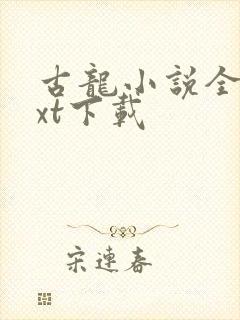 古龍小説全
xt下載
宋連春